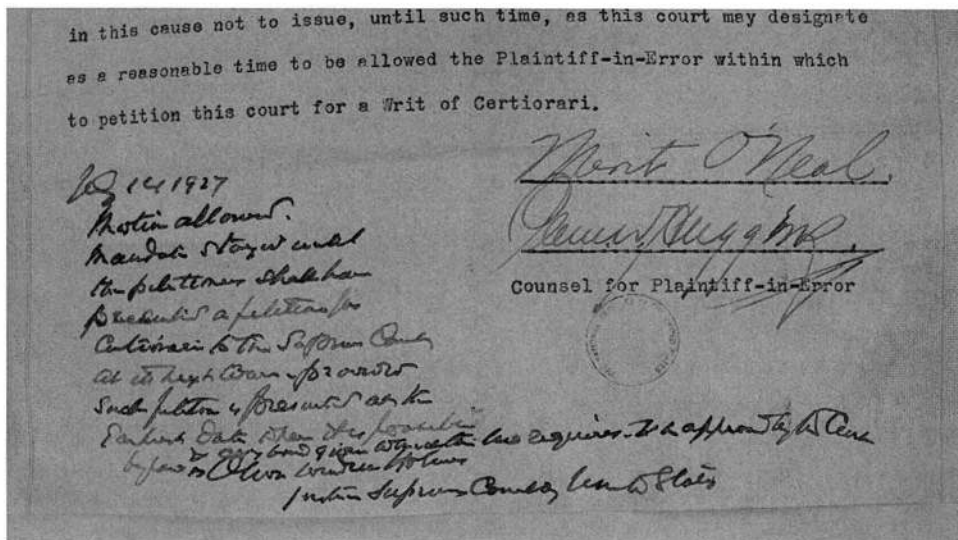 in this cause not to issue, until such time, as this court may designate
as a reasonable time to be allowed the Plaintiff-in-Error within which
to petition this court for a Writ of Certiorari.
Merit O'Neal.
Huggins.
Counsel for Plaintiff-in-Error
14 1927
Motion allowed.
Mandate stayed until
the petitioner shall have
presented a petition for
Certiorari to the Supreme Court
at its next term provided
such petition is presented at the
Earliest date when it is possible
by law & any bond given which the law requires. to be approved by the Clerk
Oliver Wendell Holmes
Justice Supreme Court of United States